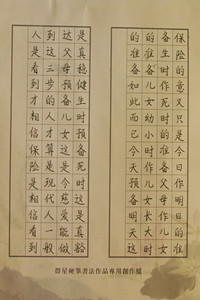 保险的意义只是今日作明日的准
备生时作死时的准备父母作儿女
的准备儿女幼小时作儿女长大时
的准备如此而已今天预备明天这
是真稳健生时预备死时这是真豁
达父母预备儿女这是慈爱能做
到这三步的人才算是现代人一般
人是看到才相信保险是相信看到
群星硬筆書法作品專用創作紙